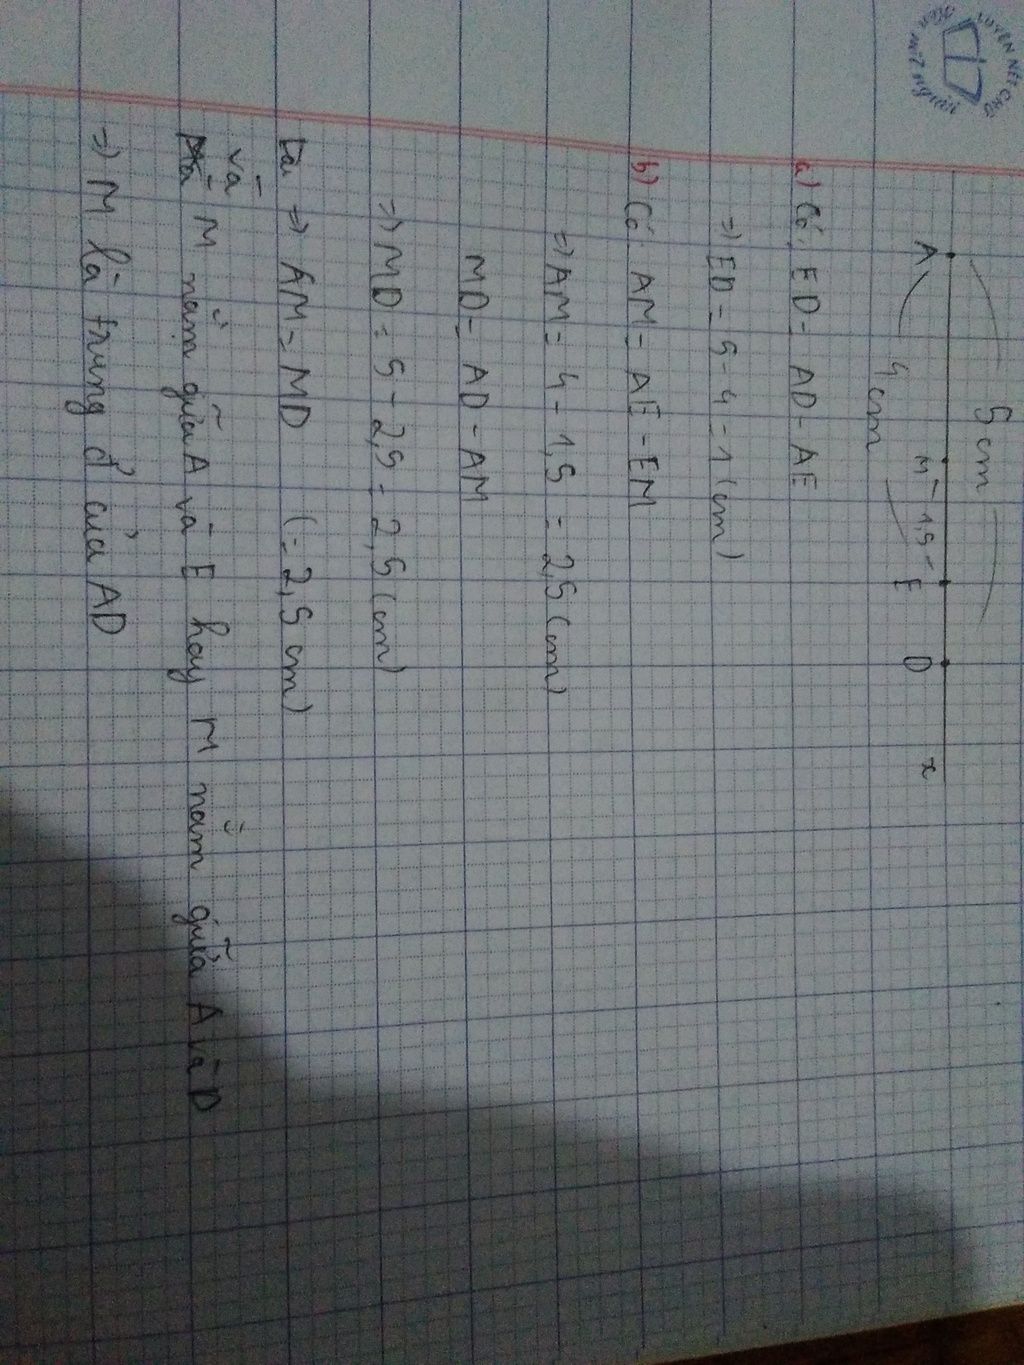 LUYỆN NÉT CHỮ
RÈN NẾT NGƯỜI
5 cm
A M 1,5 E D x
4 cm
a) Có: ED = AD - AE
=> ED = 5 - 4 = 1 (cm)
b) Có: AM = AE - EM
=> AM = 4 - 1,5 = 2,5 (cm)
MD = AD - AM
=> MD = 5 - 2,5 = 2,5 (cm)
=> AM = MD (= 2,5 cm)
và
M nằm giữa A và E hay M nằm giữa A và D
=> M là trung đ' của AD